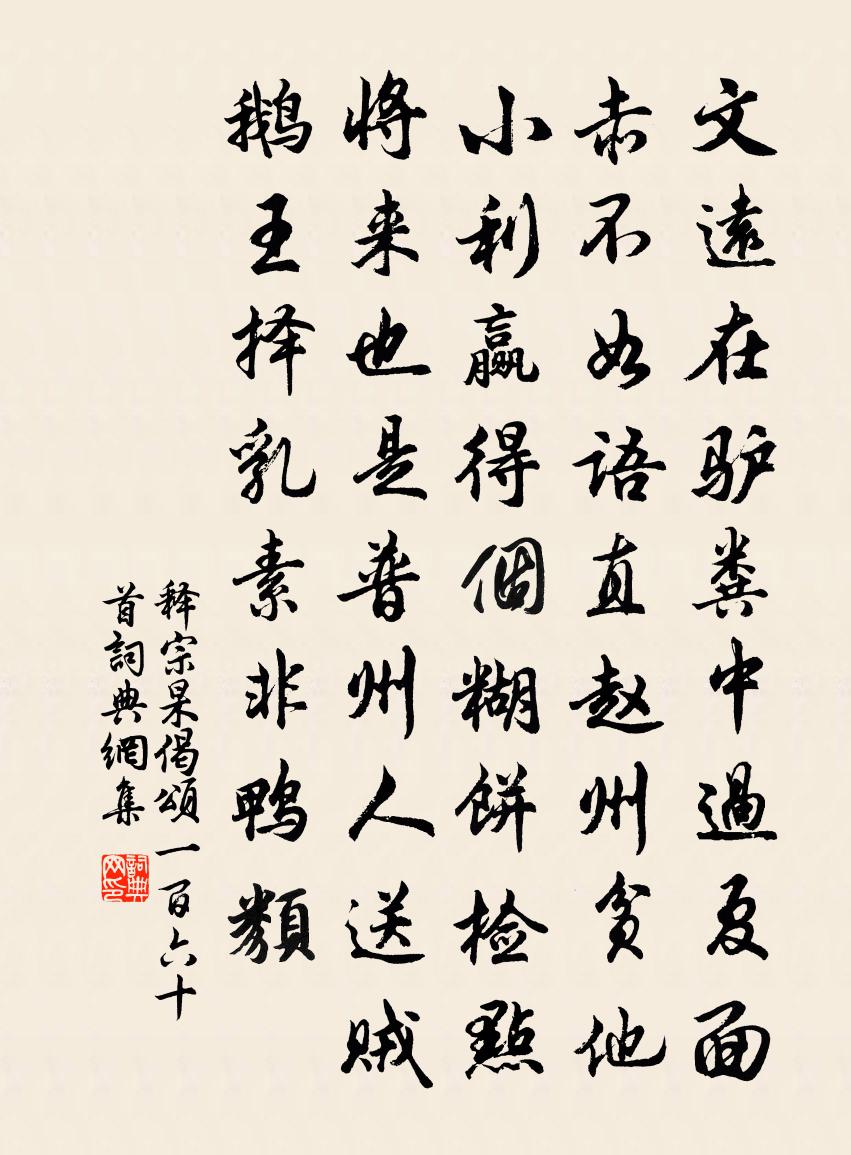 文遠在驴糞中過夏面
赤不如语直赵州貪他
小利赢得個糊餅检點
将来也是普州人送贼
鹅王择乳素非鸭類
释宗杲偈颂一百六十
首詞典網集
詞典
网印